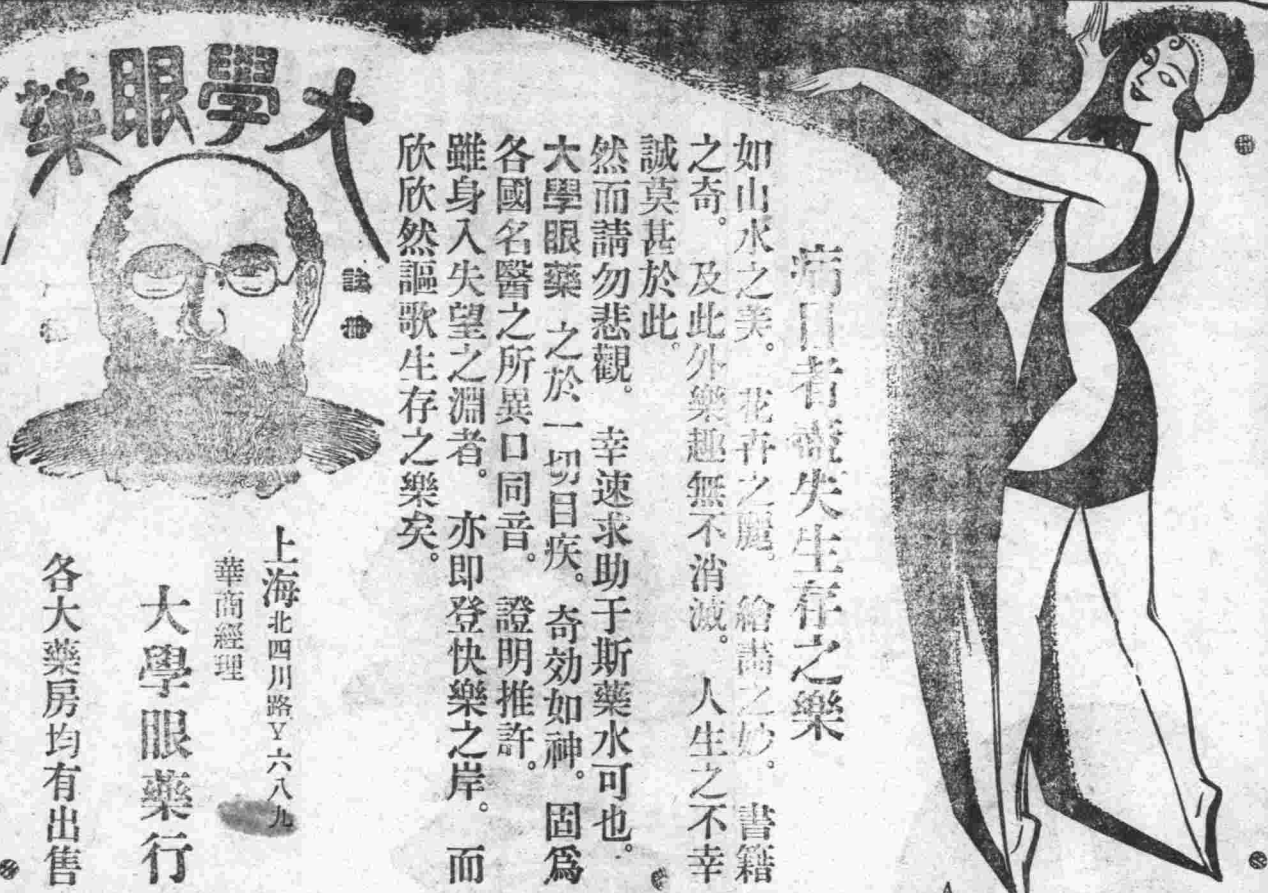 病目者壹失生存之樂
如山水之美。花卉之麗。繪畵之妙。書籍
之奇。及此外樂趣無不消滅。人生之不幸
誠莫甚於此。
然而請勿悲觀。幸速求助于斯藥水可也。
大學眼藥 之於一切目疾。奇効如神。固爲
各國名醫之所異口同音。證明推許。
雖身入失望之淵者。亦即登快樂之岸。而
欣欣然謳歌生存之樂矣。
大學眼藥
註冊
上海北四川路Y六八九
華商經理
大學眼藥行
各大藥房均有出售